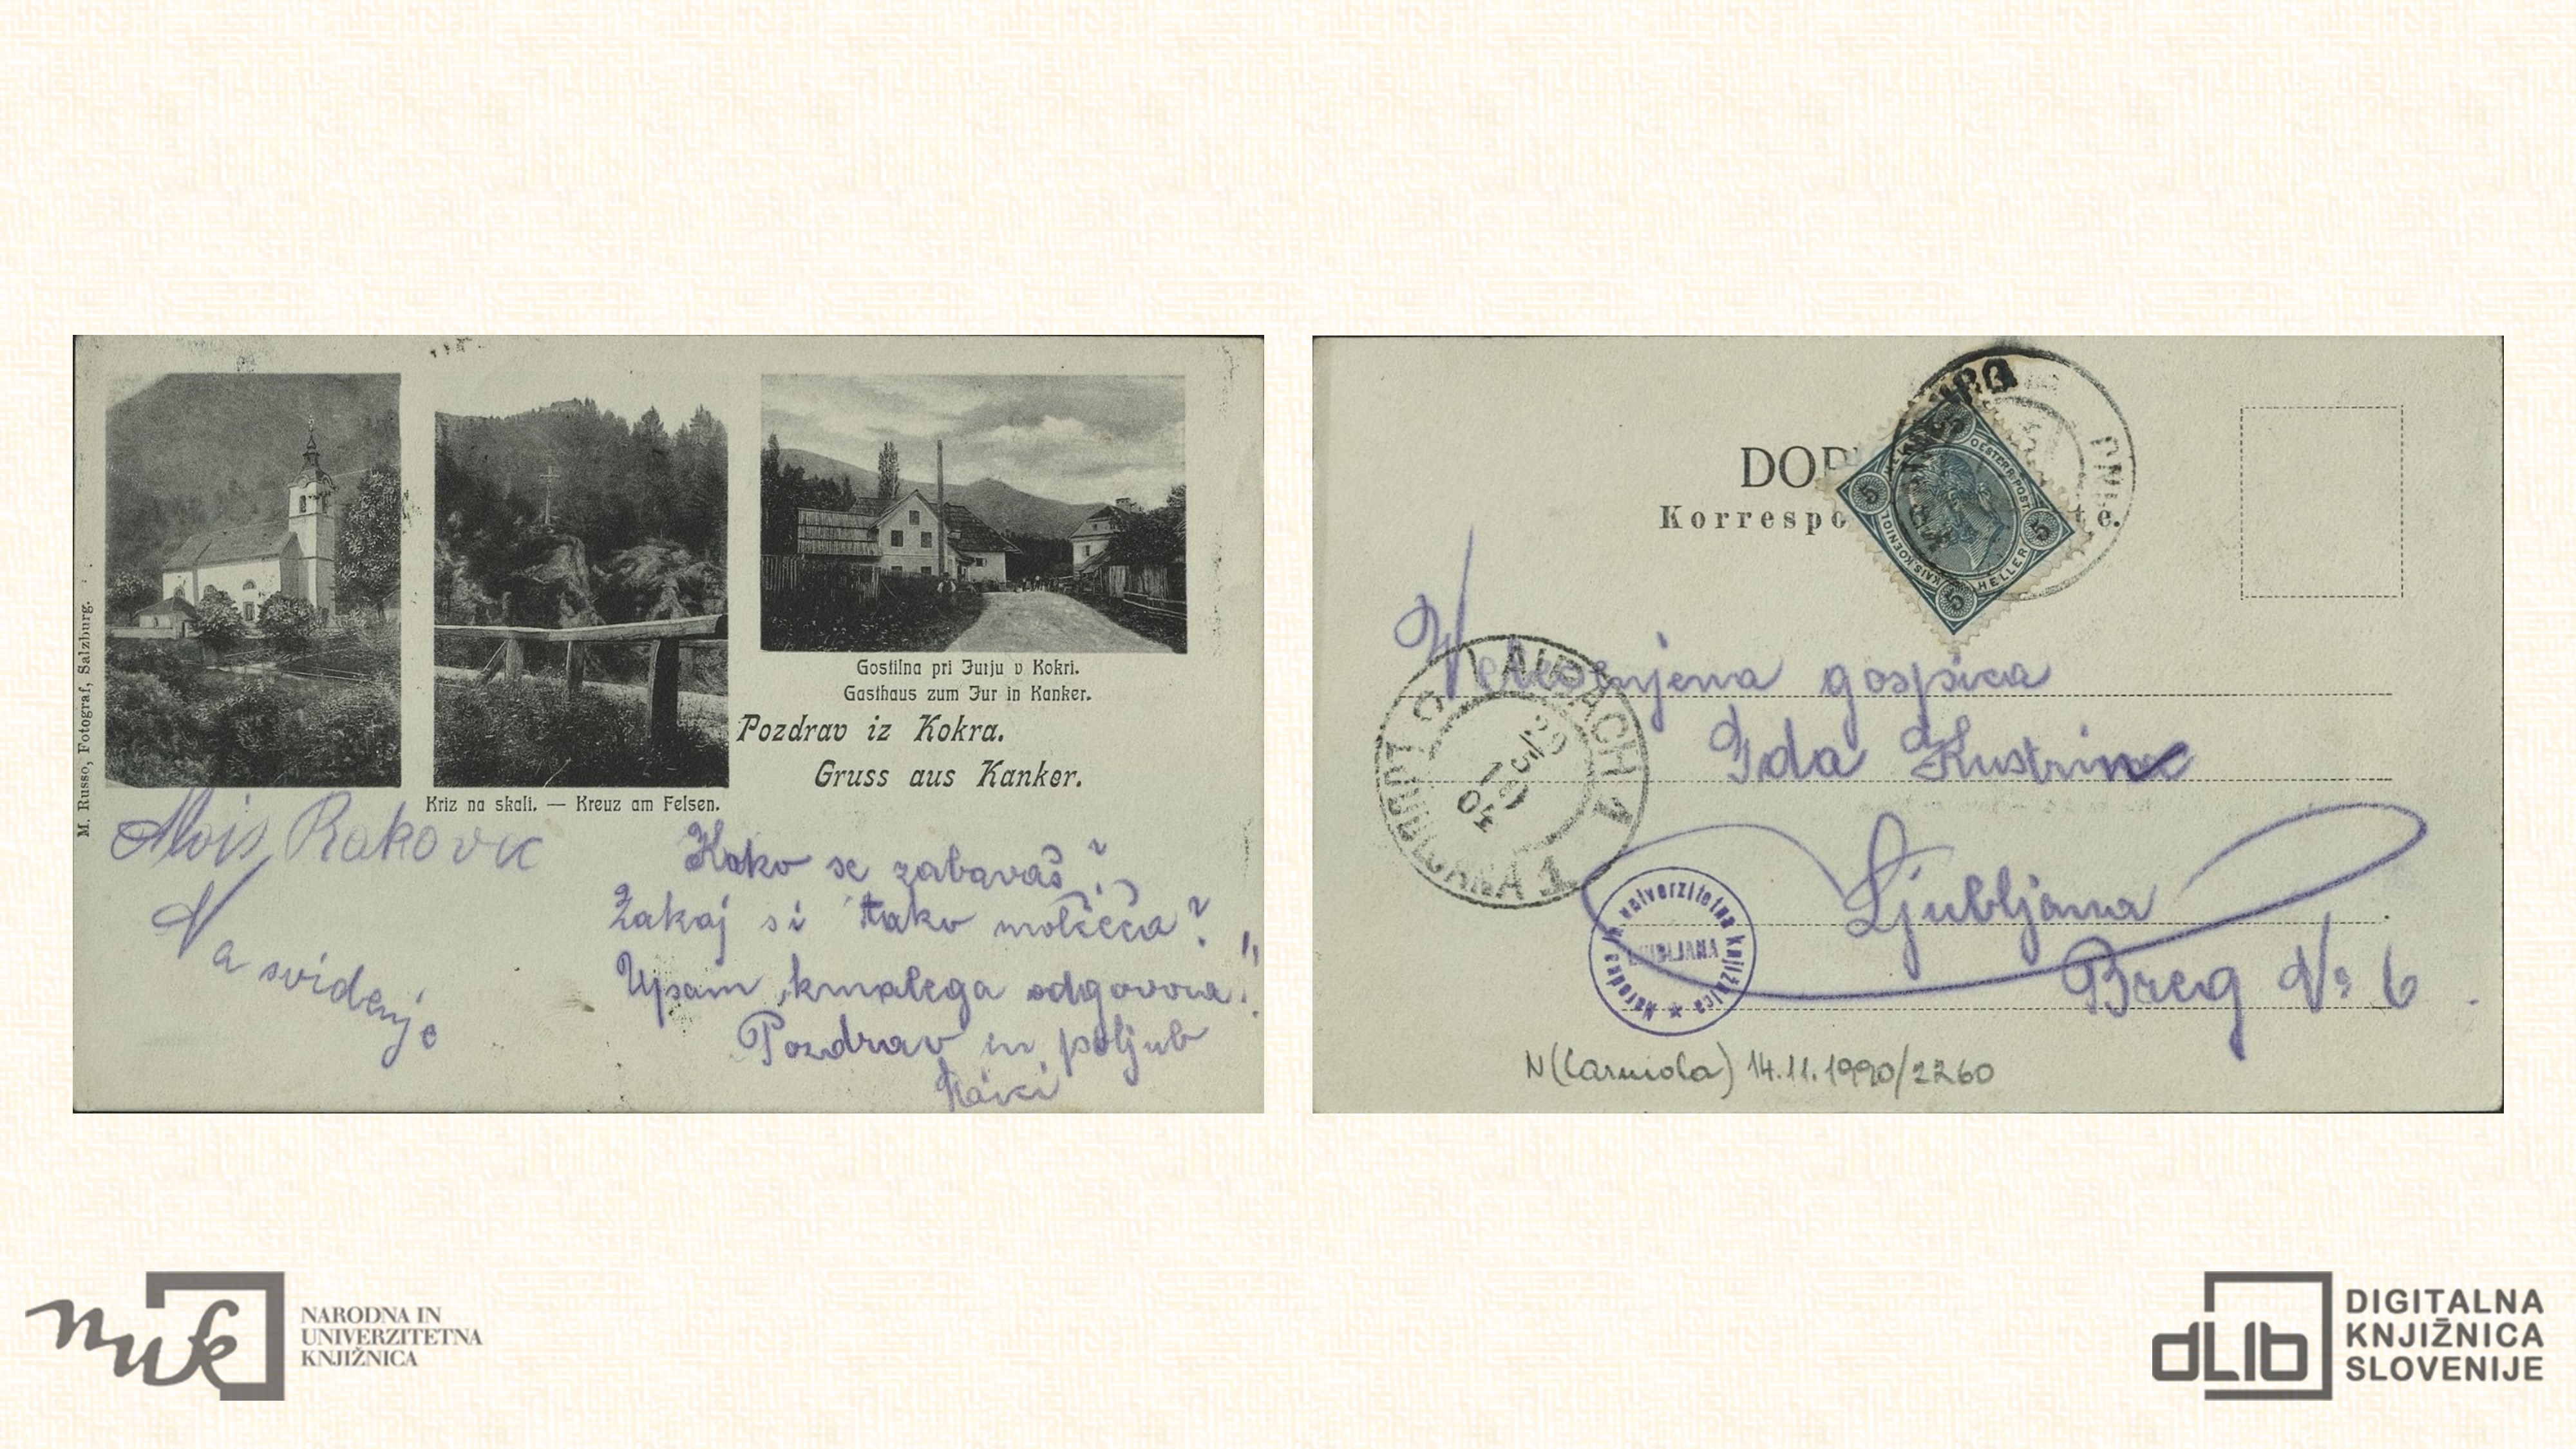 M. Russo, Fotograf, Salzburg.
Gostilna pri Jurju v Kokri.
Gasthaus zum Jur in Kanker.
Pozdrav iz Kokra.
Gruss aus Kanker.
Kriz na skali. — Kreuz am Felsen.
Alois Rakovic
Na svidenje
Kako se zabavaš?
Zakaj si tako molčeča?
Upam kmalega odgovora!
Pozdrav in poljub
DOP
Korrespo te.
KAIS. KOENIGL. OESTERR. POST.
5 HELLER 5
5 5
gospica
Ida
Ljubljana
Breg No 6
LAIBACH 1
LJUBLJANA 1
Narodna in univerzitetna knjižnica
LJUBLJANA
N(Carniola) 14.11.1990/2260
nuk
NARODNA IN
UNIVERZITETNA
KNJIŽNICA
dLib
DIGITALNA
KNJIŽNICA
SLOVENIJE